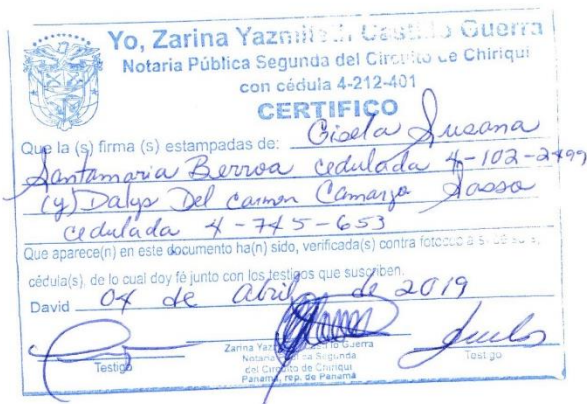 Yo, Zarina Yazmileth Castillo Guerra
Notaria Pública Segunda del Circuito de Chiriquí
con cédula 4-212-401
CERTIFICO
Que la (s) firma (s) estampadas de: Gisela Susana
Santamaria Berroa cedulada 4-102-2499
(y) Dalys Del carmen Camargo Sasso
cedulada 4-745-653
Que aparece(n) en este documento ha(n) sido, verificada(s) contra fotocopia
cédula(s), de lo cual doy fé junto con los testigos que suscriben.
David 04 de abril de 2019
Testigo
Testigo
Zarina Guerra
Notaria Segunda
del Circuito de Chiriquí
Panamá, rep. de Panamá